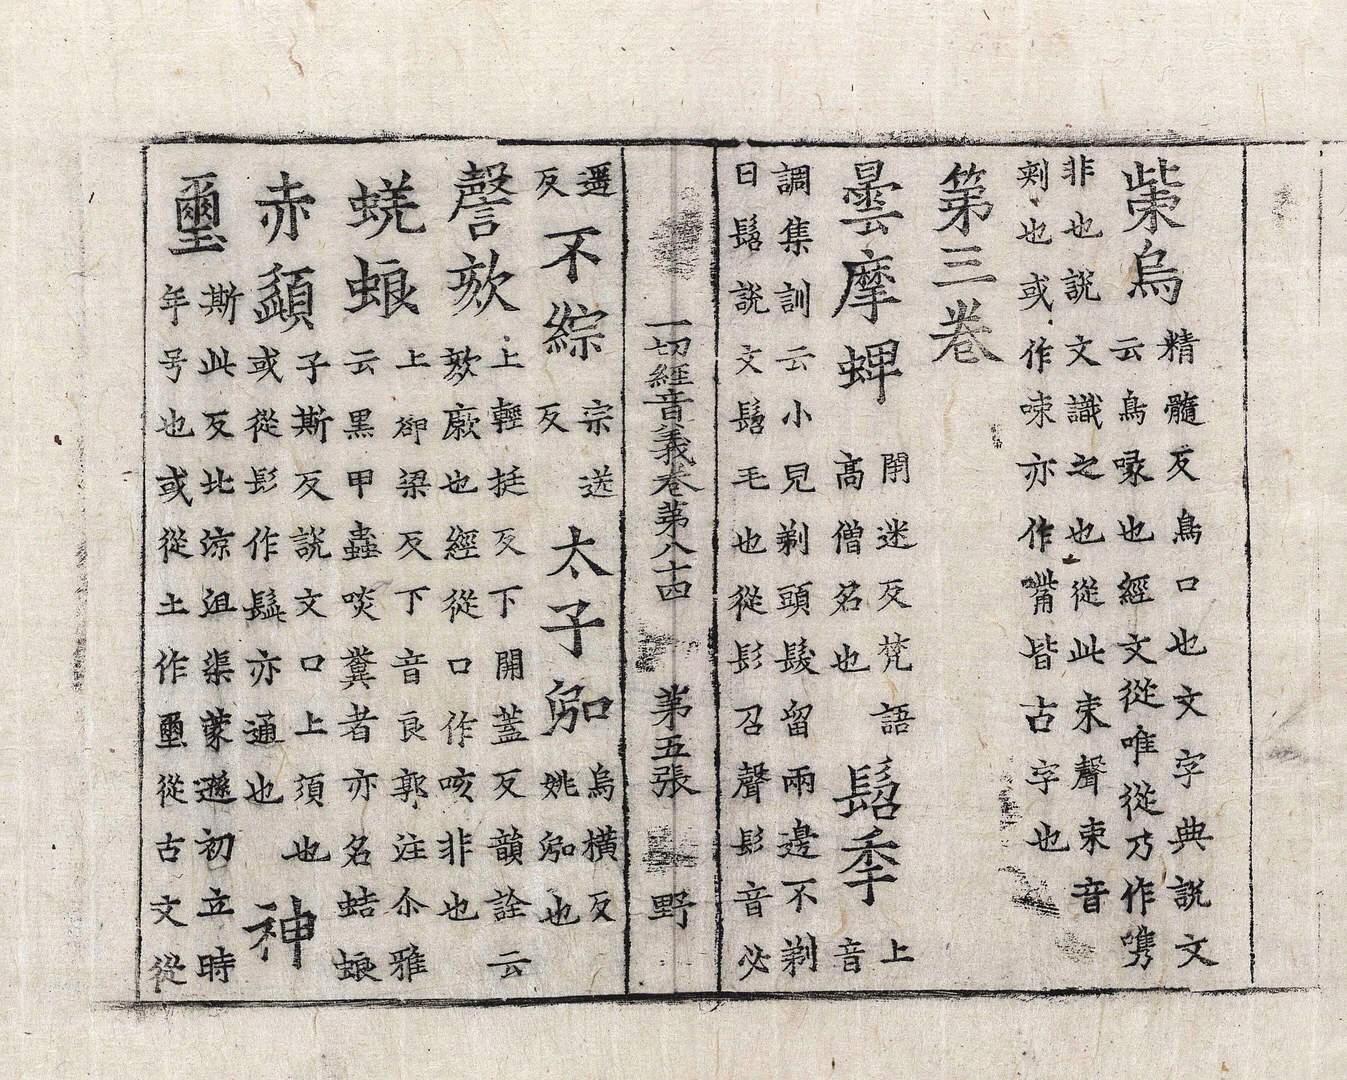 㭰烏
精髓反鳥口也文字典說文
云鳥喙也經文從唯從乃作㗻
非也說文識之也從此朿聲朿音
刺也或作㖩亦作嘴皆古字也
第三卷
曇摩蜱
閇迷反梵語
高僧名也
髫季
上
音
調集訓云小兒剃頭髮留兩邊不剃
曰髫說文髫毛也從髟召聲髟音必
一切經音義卷第八十四 第五張 野
遥
反
不綜
宗送
反
太子泓
烏橫反
姚泓也
謦欬
上輕挺反下開蓋反韻詮云
欬廒也經從口作咳非也
蜣蜋
上卻梁反下音良郭注尒雅
云黑甲蟲啖糞者亦名蛣蜋
赤頿
子斯反說文口上須也
或從髟作髭亦通也
神
璽
斯此反北涼沮渠蒙遜初立時
年号也或從土作壐從古文從